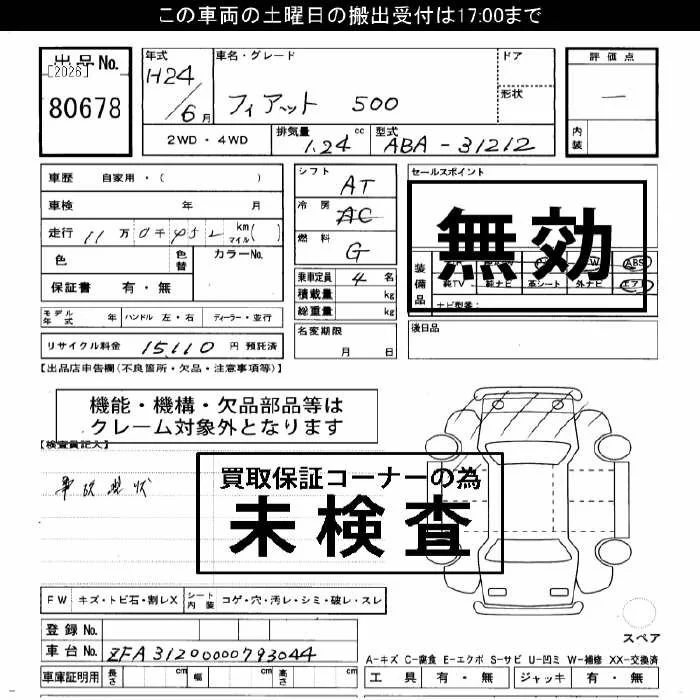 この車両の土曜日の搬出受付は17:00まで
出品No.
[2026]
80678
年式
H24/6月
車名・グレード
フィアット 500
ドア
形状
評価点
—
内装
2WD・4WD
排気量 1.24 cc
型式 ABA-31212
車歴 自家用・( )
車検 年 月
走行 11万0千452 km マイル( )
色 色替 カラーNo.
保証書 有・無
シフト AT
冷房 AC
燃料 G
乗車定員 4名
積載量 kg
総重量 kg
セールスポイント
無効
装備品
ABS
純TV 純ナビ 革シート 外ナビ エア
ナビ型番:
モデル年式 年 ハンドル 左・右 ディーラー・並行
リサイクル料金 15,110 円 預託済
名変期限 月 日
後日品
【出品店申告欄(不良箇所・欠品・注意事項等)】
機能・機構・欠品部品等は
クレーム対象外となります
【検査員記入】
買取保証コーナーの為
未検査
事故現状
FW キズ・トビ石・割レX シート内装 コゲ・穴・汚レ・シミ・破レ・スレ
登録No.
車台No. ZFA31200000793044
車庫証明用 長さ cm 幅 cm 高さ cm
スペア
A-キズ C-腐食 E-エクボ S-サビ U-凹ミ W-補修 XX-交換済
工具 有・無 ジャッキ 有・無